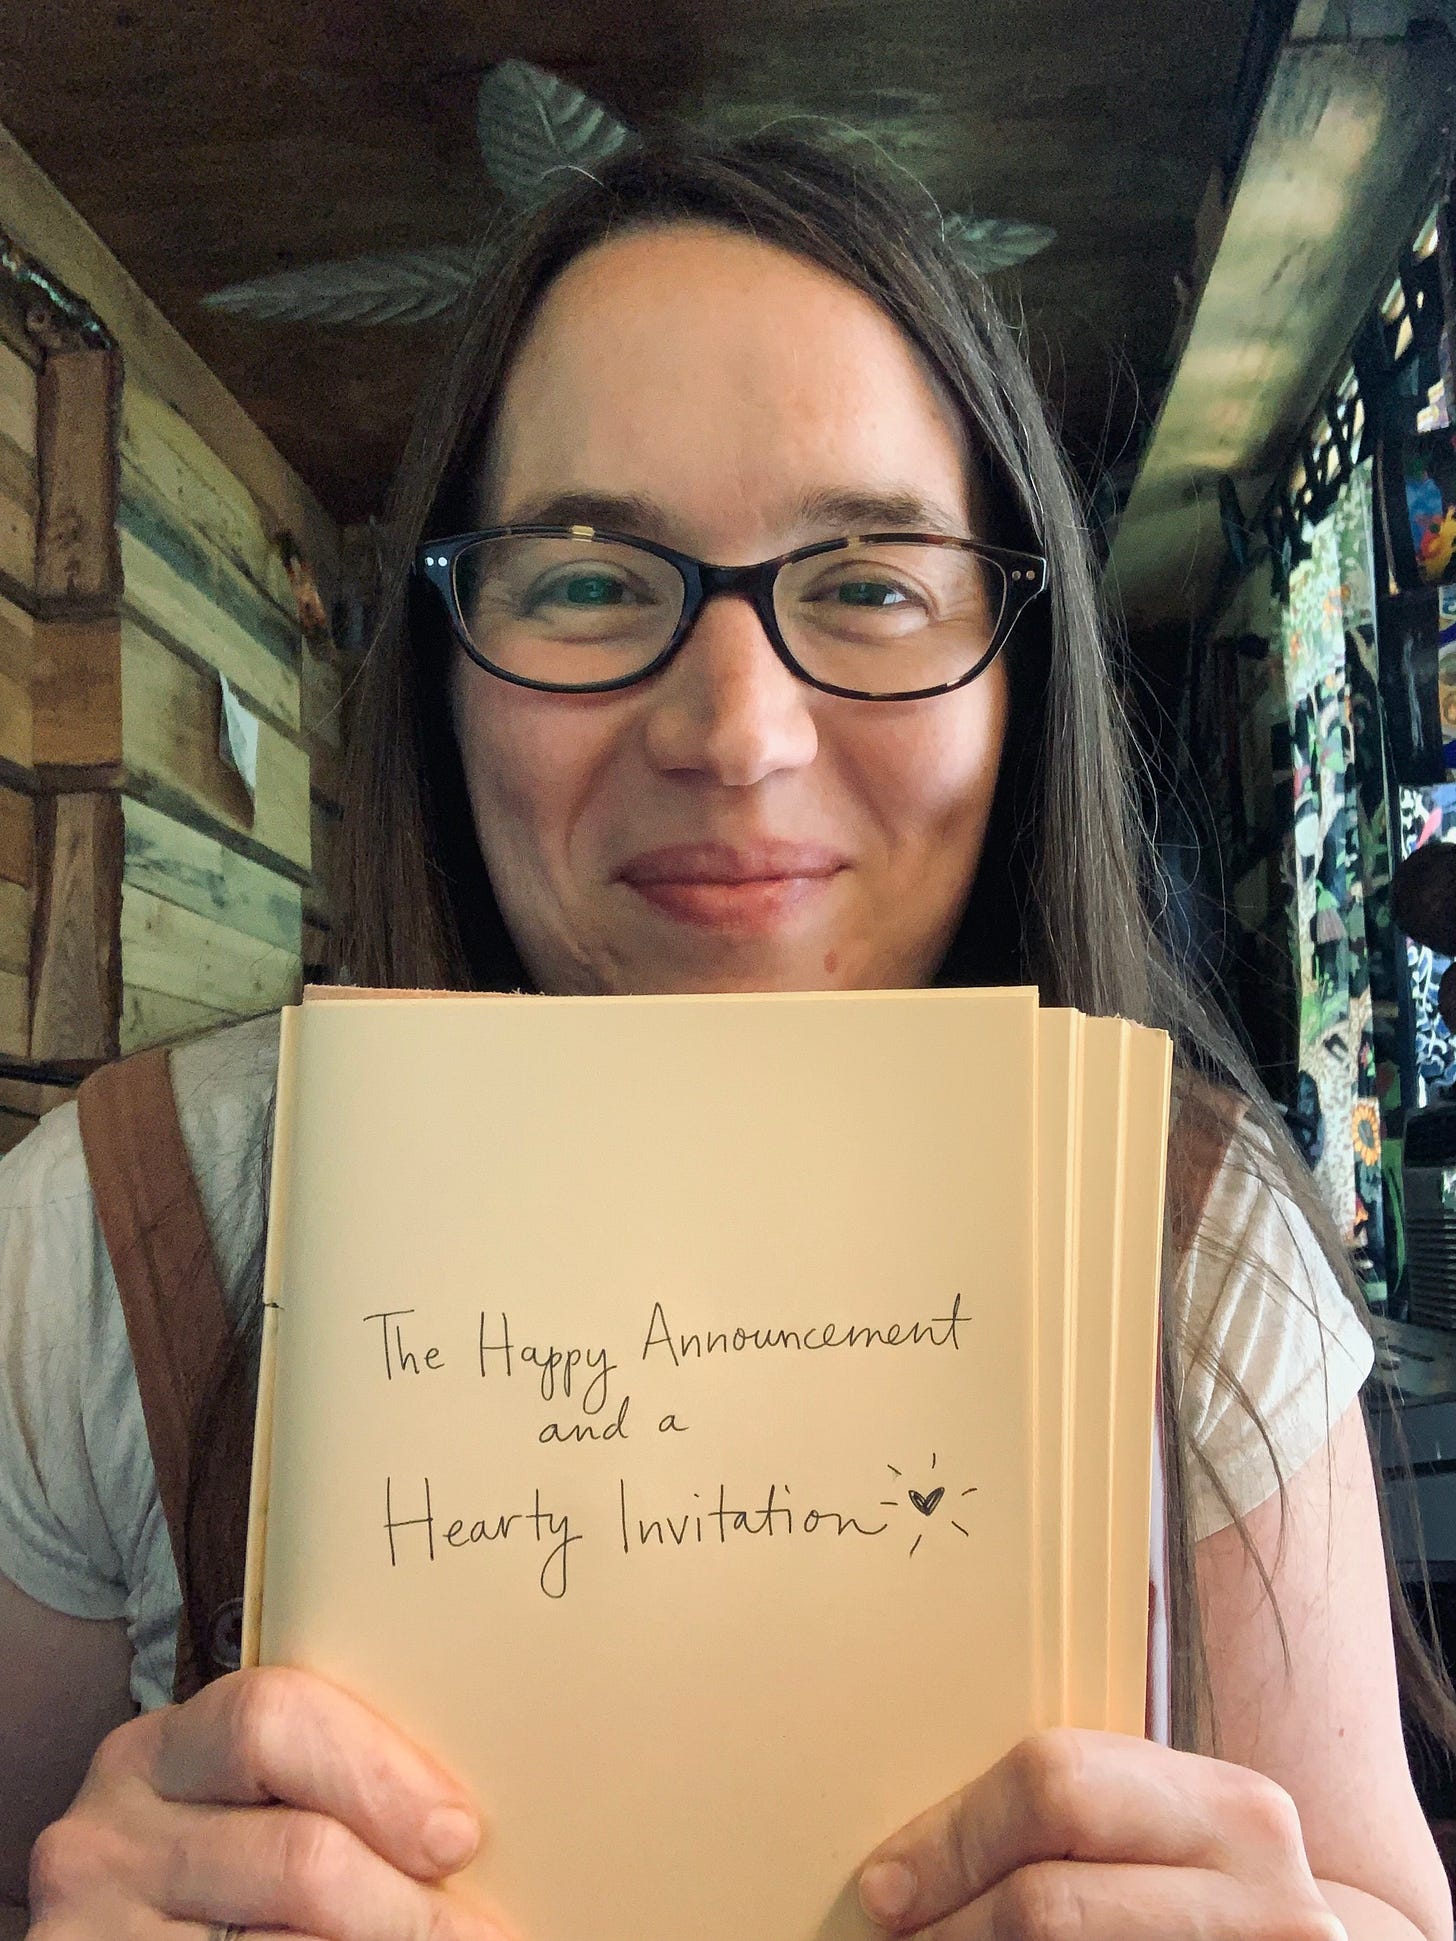 The Happy Announcement
and a
Hearty Invitation